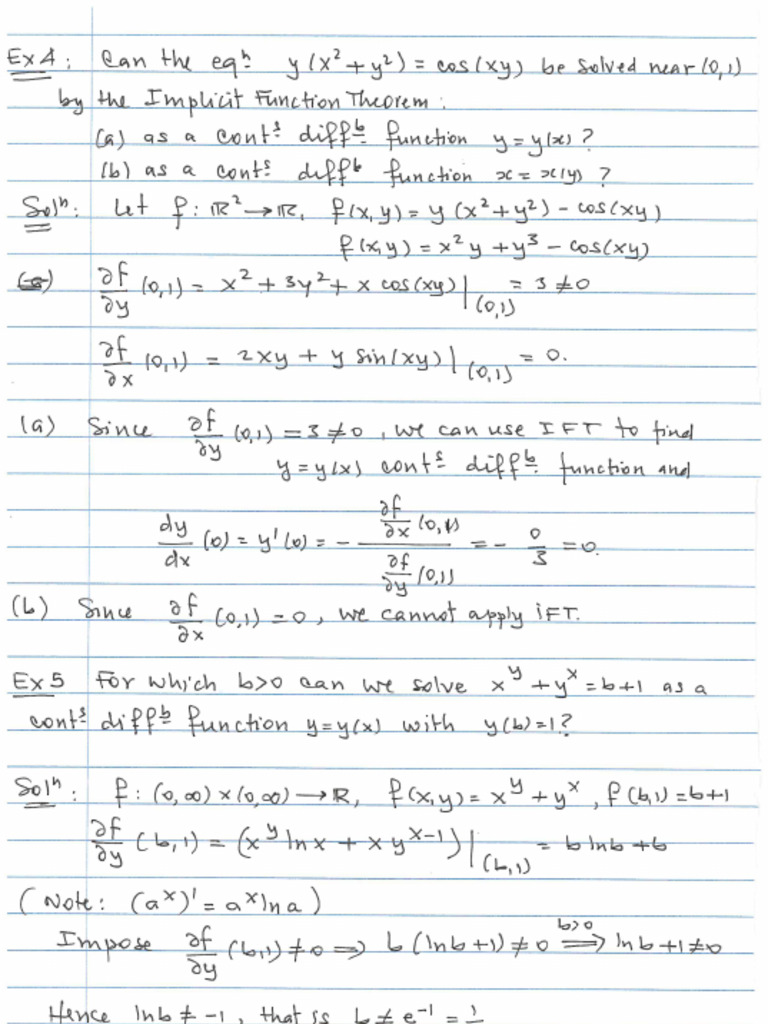 Ex 4: Can the eqⁿ y(x² + y²) = cos(xy) be solved near (0,1)
by the Implicit Function Theorem:
(a) as a contˢ diffᵇ function y = y(x)?
(b) as a contˢ diffᵇ function x = x(y)?
Solⁿ: Let f: ℝ² → ℝ, f(x,y) = y(x² + y²) - cos(xy)
f(x,y) = x²y + y³ - cos(xy)
∂f/∂y (0,1) = x² + 3y² + x cos(xy)|(0,1) = 3 ≠ 0
∂f/∂x (0,1) = 2xy + y sin(xy)|(0,1) = 0.
(a) Since ∂f/∂y (0,1) = 3 ≠ 0, we can use IFT to find
y = y(x) contˢ diffᵇ function and
dy/dx (0) = y'(0) = - ∂f/∂x (0,1) / ∂f/∂y (0,1) = - 0/3 = 0.
(b) Since ∂f/∂x (0,1) = 0, we cannot apply IFT.
Ex 5 For which b>0 can we solve x^y + y^x = b+1 as a
contˢ diffᵇ function y = y(x) with y(b) = 1?
Solⁿ: f: (0,∞) × (0,∞) → ℝ, f(x,y) = x^y + y^x, f(b,1) = b+1
∂f/∂y (b,1) = (x^y ln x + x y^(x-1))|(b,1) = b ln b + b
(Note: (a^x)' = a^x ln a)
Impose ∂f/∂y (b,1) ≠ 0 ⟹ b(ln b + 1) ≠ 0 ⟹ b>0 ln b + 1 ≠ 0
Hence ln b ≠ -1, that is b ≠ e⁻¹ = 1